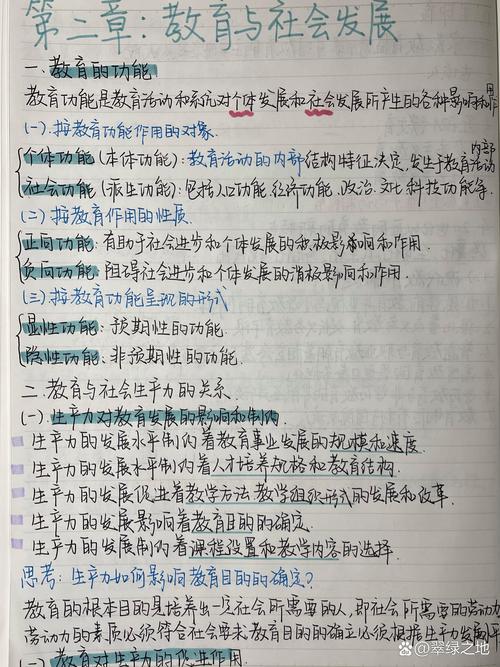 第二章：教育与社会发展
一、教育的功能
教育功能是教育活动和系统对个体发展和社会发展所产生的各种影响和作用
(一). 按教育功能作用的对象.
个体功能(本体功能)：教育活动的内部结构特征决定，发生于教育活动内部
社会功能(派生功能)：包括人口功能.经济功能.政治.文化科技功能等.
(二) 按教育作用的性质.
正向功能：有助于社会进步和个体发展的积极影响和作用.
负向功能：阻碍社会进步和个体发展的消极影响和作用.
(三) 按教育功能呈现的形式
显性功能：预期性的功能.
隐性功能：非预期性的功能.
二.教育与社会生产力的关系.
(一).生产力对教育发展的影响和制约
生产力的发展水平制约着教育事业发展的规模和速度.
生产力的发展水平制约着人才培养规格和教育结构.
生产力的发展促进着教学方法 教学组织形式的发展和改革.
生产力的发展影响着教育目的的确定.
生产力的发展制约着课程设置和教学内容的选择.
思考：生产力如何影响教育目的的确定？
教育的根本目的是培养出一定社会所需要的人，即社会所需要的劳动力
劳动力的素质必须符合社会要求.教育目的的确立必须根据生产力发展
(二) 教育对生产力的促进作用.
Baijiahao 翠绿之地